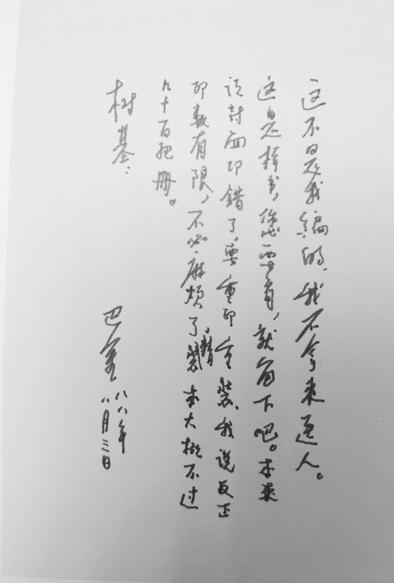 这不是我编的,我不拿来送人。
这是样书,您要,就留下吧。本来
说封面印错了,要重印重装,我说反正
印数有限,不必麻烦了。精装本大概不过
几十百把册。
树基:
巴金
八八年
八月三日